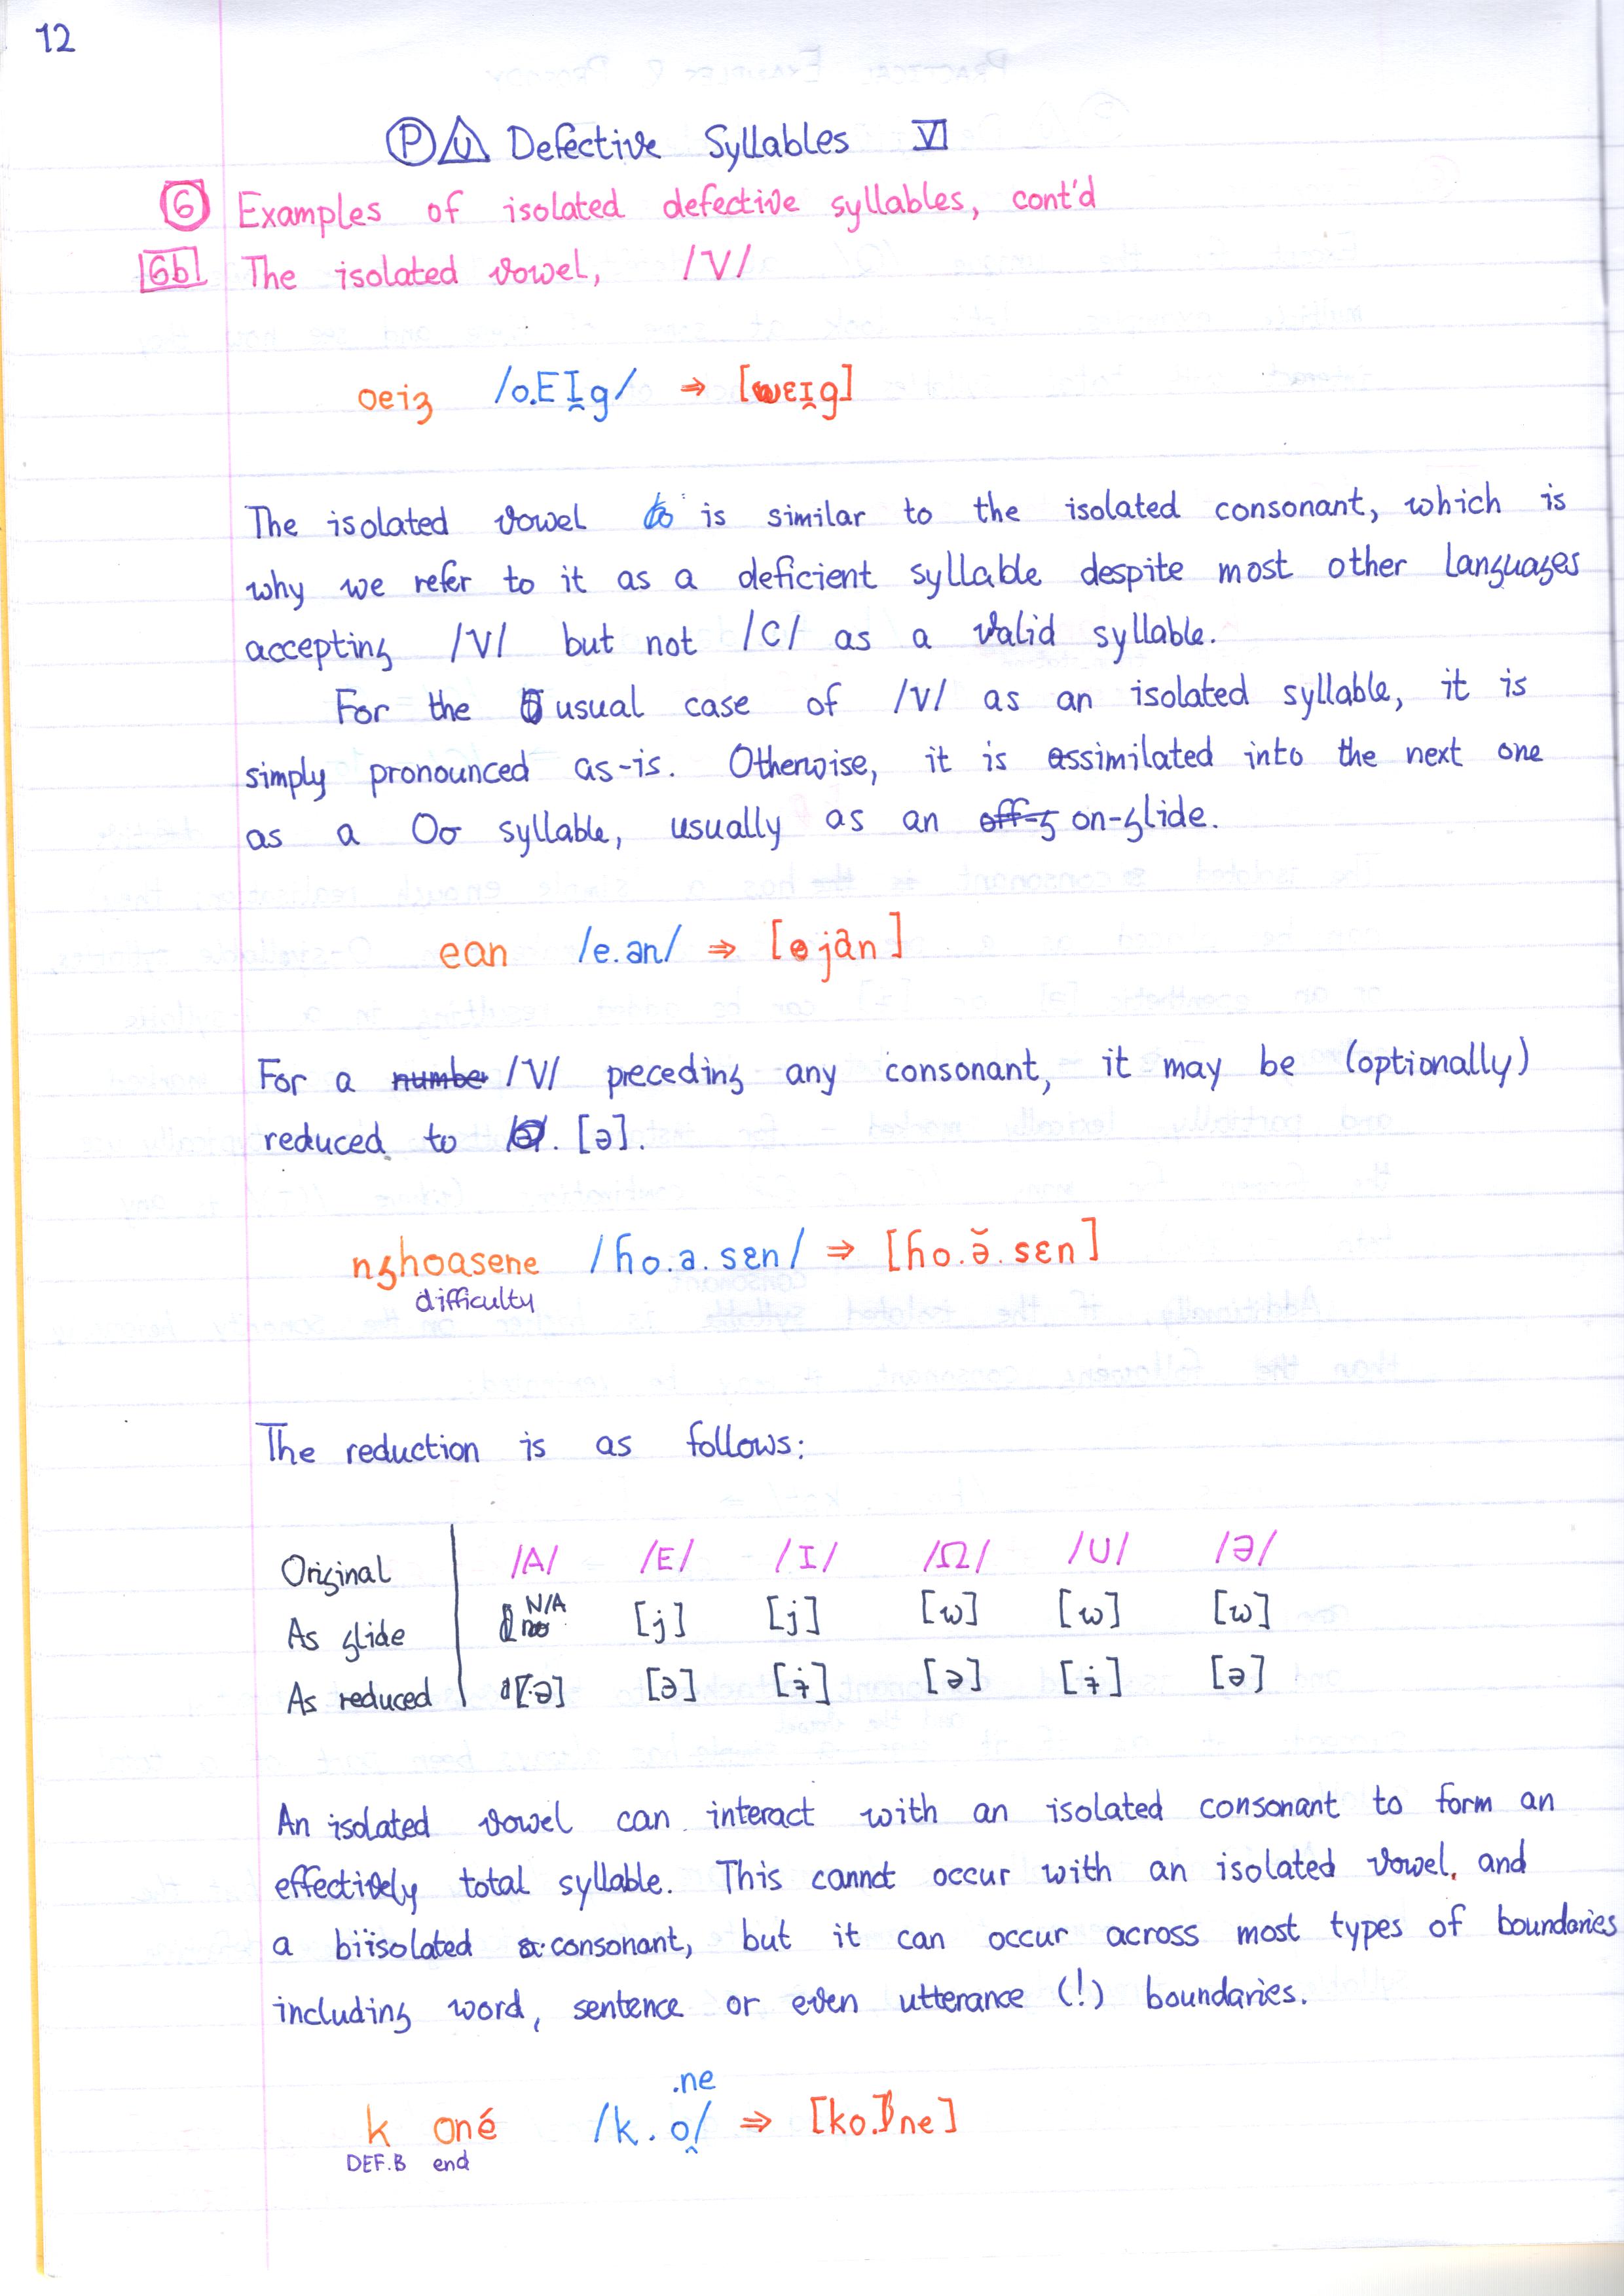 12
Ⓟ U Defective Syllables VI
6 Examples of isolated defective syllables, cont'd
6b The isolated vowel, /V/
oeiʒ /o.EI̯g/ ⇒ [wɛɪ̯g]
The isolated vowel is similar to the isolated consonant, which is
why we refer to it as a deficient syllable despite most other languages
accepting /V/ but not /C/ as a valid syllable.
For the usual case of /V/ as an isolated syllable, it is
simply pronounced as-is. Otherwise, it is assimilated into the next one
as a Oσ syllable, usually as an off-g on-glide.
ean /e.an/ ⇒ [ejan]
For a number /V/ preceding any consonant, it may be (optionally)
reduced to [ə].
nghoasene /ɦo.a.sɛn/ ⇒ [ɦo.ə̆.sɛn]
difficulty
The reduction is as follows:
Original /A/ /E/ /I/ /Ω/ /U/ /Ə/
As glide N/A [j] [j] [w] [w] [w]
As reduced [ə] [ə] [ɨ] [ə] [ɨ] [ə]
An isolated vowel can interact with an isolated consonant to form an
effectively total syllable. This cannot occur with an isolated vowel and
a biisolated consonant, but it can occur across most types of boundaries
including word, sentence or even utterance (!) boundaries.
k oné /k.o̯.ne/ ⇒ [ko.ne]
DEF.B end